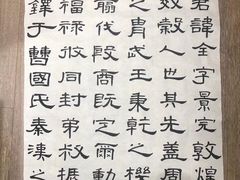 君諱全字景完敦煌
效穀人也其先蓋周
之胄武王秉乾之機
翦伐殷商既定爾勳
福祿攸同封弟叔振
鐸于曹國氏秦漢之